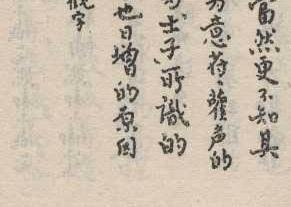 當然更不知具
为意符蒦声的
士子所識的
也日增的原因